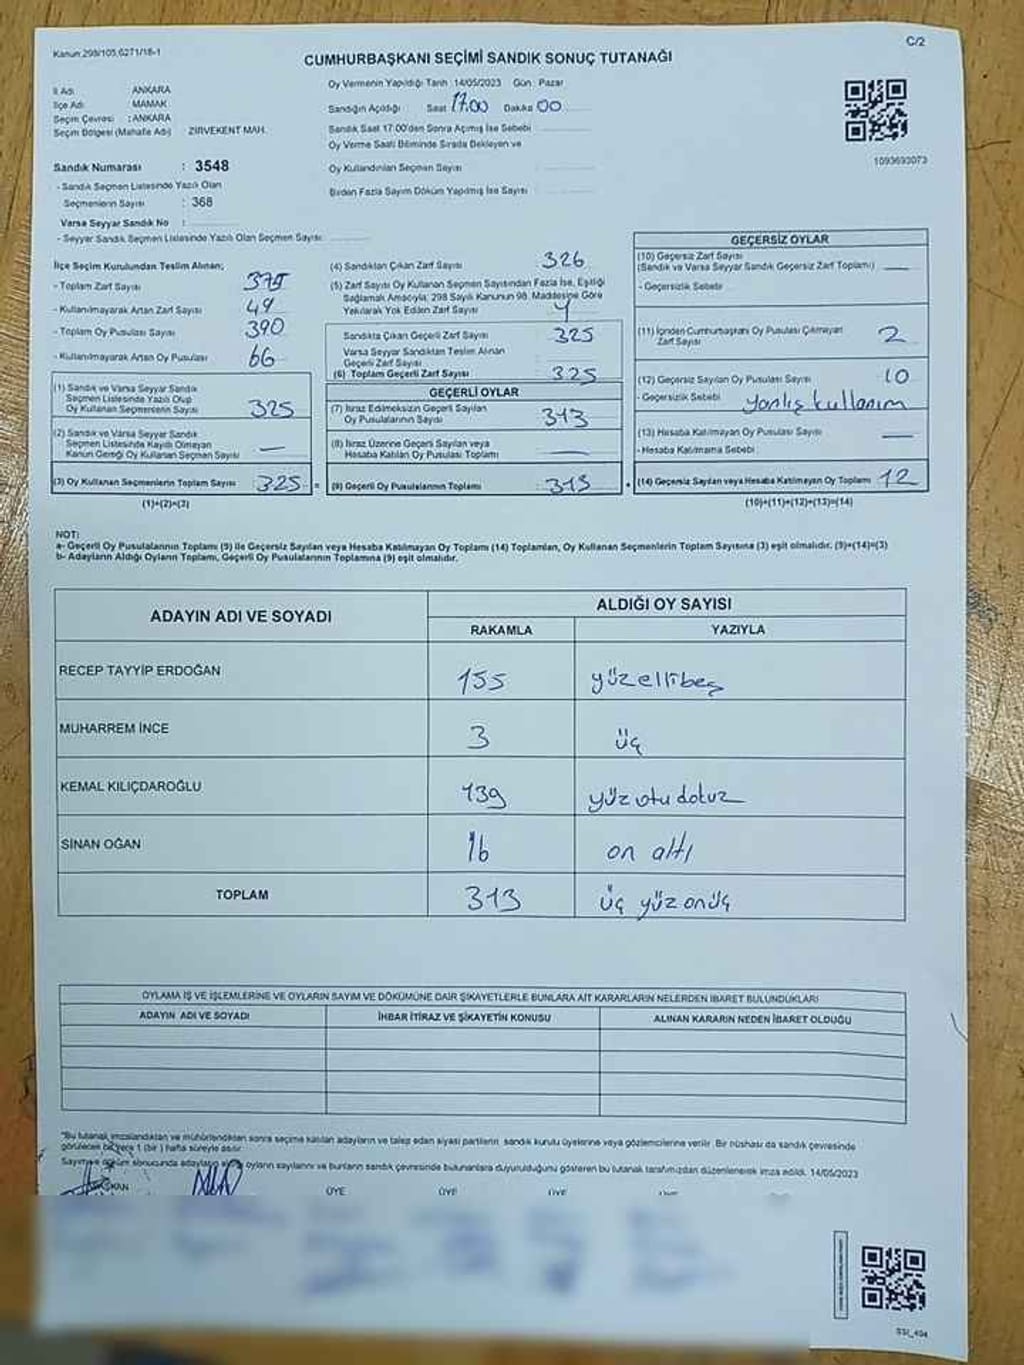 Kanun:298/105,6271/18-1
C/2
CUMHURBAŞKANI SEÇİMİ SANDIK SONUÇ TUTANAĞI
İl Adı : ANKARA
İlçe Adı : MAMAK
Seçim Çevresi : ANKARA
Seçim Bölgesi (Mahalle Adı) ZİRVEKENT MAH.
Oy Vermenin Yapıldığı Tarih :14/05/2023 Gün : Pazar
Sandığın Açıldığı Saat 17.00 Dakika 00
Sandık Saat 17.00'den Sonra Açmış İse Sebebi
Oy Verme Saati Bitiminde Sırada Bekleyen ve
Oy Kullandırılan Seçmen Sayısı
Birden Fazla Sayım Döküm Yapılmış İse Sayısı
1093693073
Sandık Numarası : 3548
- Sandık Seçmen Listesinde Yazılı Olan
Seçmenlerin Sayısı : 368
Varsa Seyyar Sandık No :
- Seyyar Sandık Seçmen Listesinde Yazılı Olan Seçmen Sayısı:
İlçe Seçim Kurulundan Teslim Alınan;
- Toplam Zarf Sayısı
- Kullanılmayarak Artan Zarf Sayısı 49
- Toplam Oy Pusulası Sayısı 390
- Kullanılmayarak Artan Oy Pusulası 66
(1) Sandık ve Varsa Seyyar Sandık
Seçmen Listesinde Yazılı Olup
Oy Kullanan Seçmenlerin Sayısı 325
(2) Sandık ve Varsa Seyyar Sandık
Seçmen Listesinde Kaydı Olmayan
Kanun Gereği Oy Kullanan Seçmen Sayısı —
(3) Oy Kullanan Seçmenlerin Toplam Sayısı 325 =
(1)+(2)=(3)
(4) Sandıktan Çıkan Zarf Sayısı 326
(5) Zarf Sayısı Oy Kullanan Seçmen Sayısından Fazla İse, Eşitliği
Sağlamak Amacıyla; 298 Sayılı Kanunun 98. Maddesine Göre
Yakılarak Yok Edilen Zarf Sayısı
Sandıkta Çıkan Geçerli Zarf Sayısı 325
Varsa Seyyar Sandıktan Teslim Alınan
Geçerli Zarf Sayısı
(6) Toplam Geçerli Zarf Sayısı 325
GEÇERLİ OYLAR
(7) İtiraz Edilmeksizin Geçerli Sayılan
Oy Pusulalarının Sayısı 313
(8) İtiraz Üzerine Geçerli Sayılan veya
Hesaba Katılan Oy Pusulası Toplamı —
(9) Geçerli Oy Pusulalarının Toplamı 313 +
GEÇERSİZ OYLAR
(10) Geçersiz Zarf Sayısı
(Sandık ve Varsa Seyyar Sandık Geçersiz Zarf Toplamı) —
- Geçersizlik Sebebi
(11) İçinden Cumhurbaşkanı Oy Pusulası Çıkmayan
Zarf Sayısı 2
(12) Geçersiz Sayılan Oy Pusulası Sayısı 10
- Geçersizlik Sebebi yanlış kullanım
(13) Hesaba Katılmayan Oy Pusulası Sayısı —
- Hesaba Katılmama Sebebi
(14) Geçersiz Sayılan veya Hesaba Katılmayan Oy Toplamı 12
(10)+(11)+(12)+(13)=(14)
NOT:
a- Geçerli Oy Pusulalarının Toplamı (9) ile Geçersiz Sayılan veya Hesaba Katılmayan Oy Toplamı (14) Toplamları, Oy Kullanan Seçmenlerin Toplam Sayısına (3) eşit olmalıdır. (9)+(14)=(3)
b- Adayların Aldığı Oyların Toplamı, Geçerli Oy Pusulalarının Toplamına (9) eşit olmalıdır.
ADAYIN ADI VE SOYADI
ALDIĞI OY SAYISI
RAKAMLA YAZIYLA
RECEP TAYYİP ERDOĞAN 155 yüzellibeş
MUHARREM İNCE 3 üç
KEMAL KILIÇDAROĞLU 139 yüz otu dokuz
SİNAN OĞAN 16 on altı
TOPLAM 313 üç yüz onüç
OYLAMA İŞ VE İŞLEMLERİNE VE OYLARIN SAYIM VE DÖKÜMÜNE DAİR ŞİKAYETLERLE BUNLARA AİT KARARLARIN NELERDEN İBARET BULUNDUKLARI
ADAYIN ADI VE SOYADI İHBAR İTİRAZ VE ŞİKAYETİN KONUSU ALINAN KARARIN NEDEN İBARET OLDUĞU
"Bu tutanak imzalandıktan ve mühürlendikten sonra seçime katılan adayların ve talep eden siyasi partilerin sandık kurulu üyelerine veya gözlemcilerine verilir. Bir nüshası da sandık çevresinde
görülecek bir yere 1 (bir) hafta süreyle asılır.
Sayım ve döküm sonucunda adayların aldığı oyların sayılarını ve bunların sandık çevresinde bulunanlara duyurulduğunu gösteren bu tutanak tarafımızdan düzenlenerek imza edildi. 14/05/2023
BAŞKAN ÜYE ÜYE ÜYE
SSI_404